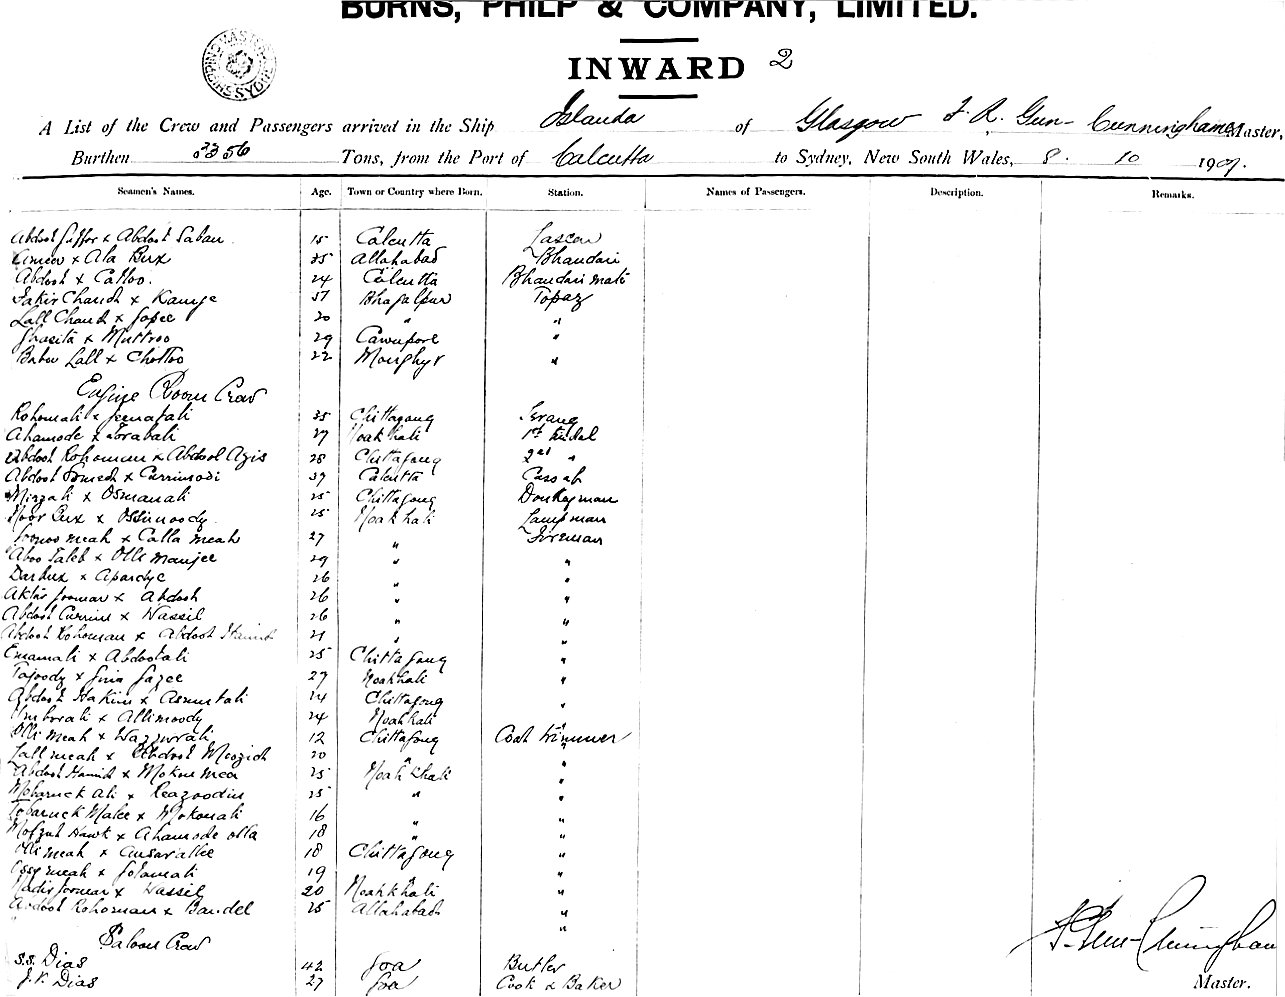 BURNS, PHILP & COMPANY, LIMITED.
INWARD 2
A List of the Crew and Passengers arrived in the Ship Islanda of Glasgow F. R. Gun-Cunninghame Master,
Burthen 3356 Tons, from the Port of Calcutta to Sydney, New South Wales, 8. 10 1907.
Seamen's Names. Age. Town or Country where Born. Station. Names of Passengers. Description. Remarks.
Abdool Guffor x Abdool Saban 15 Calcutta Lascar
Ameer x Ala Bux 35 Allahabad Bhandari
Abdool x Calloo. 24 Calcutta Bhandari mate
Fakir Chand x 37 Bhagalpur Topaz
Lall Chand x Gopee 20 " "
Ghasita x Muttroo 29 Cawnpore "
Babu Lall x Chottoo 22 Monghyr "
Engine Room Crew
Rohomali x Jeenatali 35 Chittagong Serang
Ahamode x Torabali 37 Noakhali 1st tindal
Abdool Rohoman x Abdool Azis 28 Chittagong 2nd "
Abdool Somed x Currimodi 37 Calcutta Cassab
Mirzali x Osmanali 25 Chittagong Donkeyman
Noor Bux x 25 Noakhali Lampman
Soonoo meah x Calla meah 27 " Fireman
Aboo Taleb x Olli Manjee 29 " "
Darbux x 26 " "
x Abdool 26 " "
Abdool Currim x Wassil 26 " "
Abdool Rohoman x Abdool Hamid 21 " "
Emamali x Abdoolali 25 Chittagong "
x Gazee 27 Noakhali "
Abdool Hakim x Asmutali 24 Chittagong "
Umborali x Allimoody 24 Noakhali "
Olli meah x Wazzurali 12 Chittagong Coal trimmer
Lall meah x Abdool 20 " "
Abdool Hamid x 25 Noakhali "
Mobaruck Ali x Reazoodin 25 " "
Tobaruck x Mokonali 16 " "
Mofzul Hawk x Ahamode olla 18 " "
Olli meah x Ansarallee 18 Chittagong "
meah x Golamali 19 "
x Wassil 20 Noakhali "
Abdool Rohoman x Bandel 25 Allahabad "
"
Saloon Crew
S.S. Dias 42 Goa Butler
J.P. Dias 27 Goa Cook & Baker
F. Gun-Cunningham
Master.